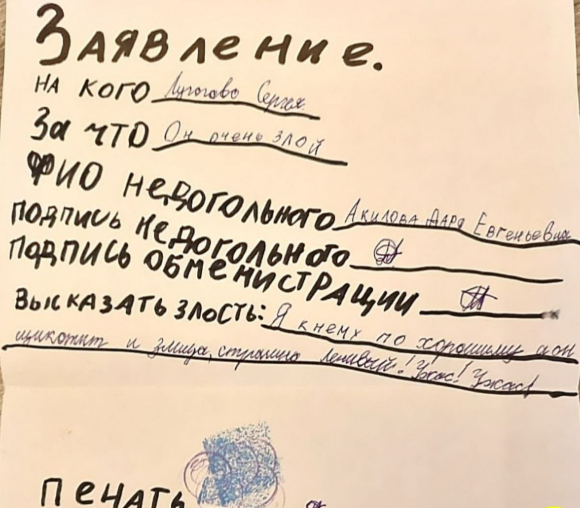 Заявление.
НА КОГО Лугогово Сергея
За что Он очень злой
ФИО недогольного Акилова Даря Евгеньевна
подпись недогольного
подпись обменистрации
Высказать злость: Я к нему по хорошиму а он
щикотит и злица, страшно ленивый! Ужас! Ужас!
Печать